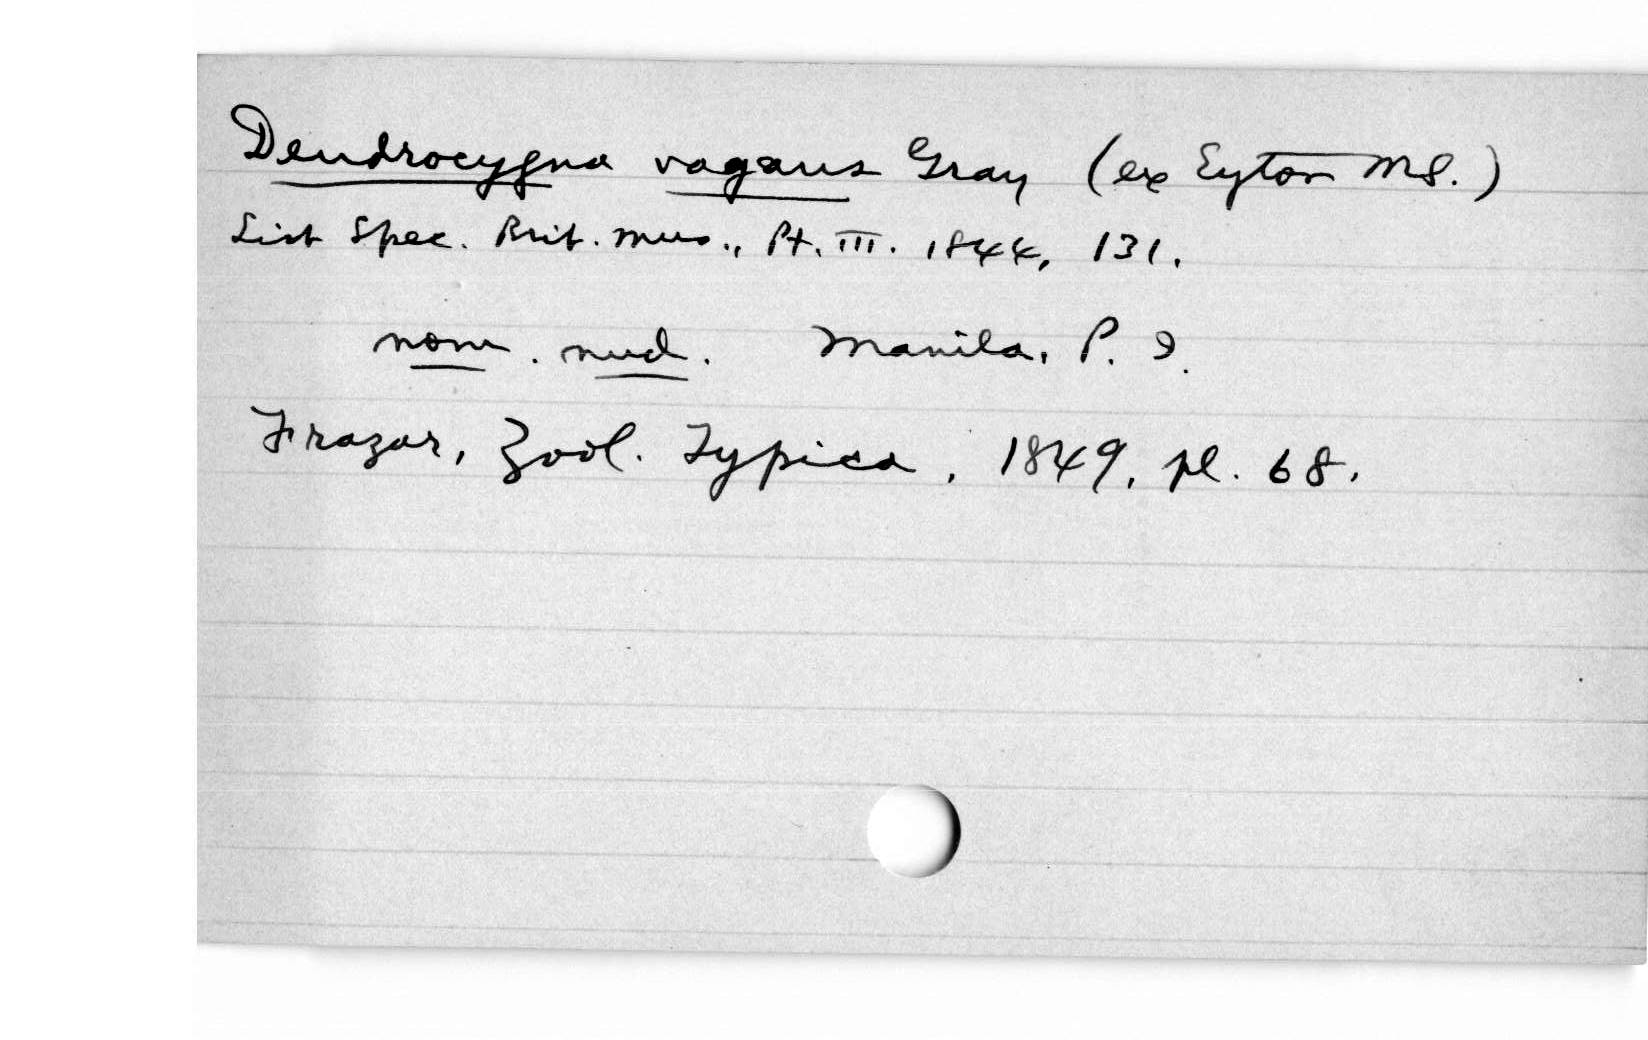 Dendrocygna vagans Gray (ex Eyton MS.)
List Spec. Brit. Mus., Pt. III. 1844, 131.
nom. nud. Manila, P. I.
Frazar, Zool. Typica, 1849, pl. 68.